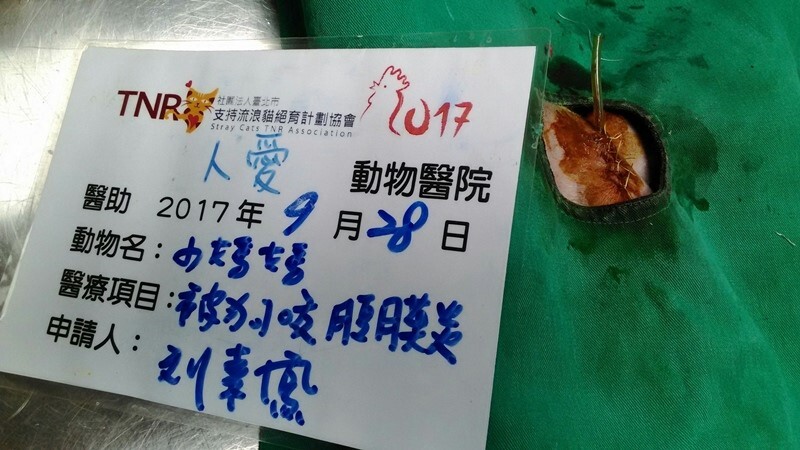 TNR 社團法人臺北市
支持流浪貓絕育計劃協會
Stray Cats TNR Association
2017
人愛 動物醫院
醫助 2017年 9 月 28 日
動物名：
醫療項目：被狗咬 腹膜炎
申請人：刘素鳳